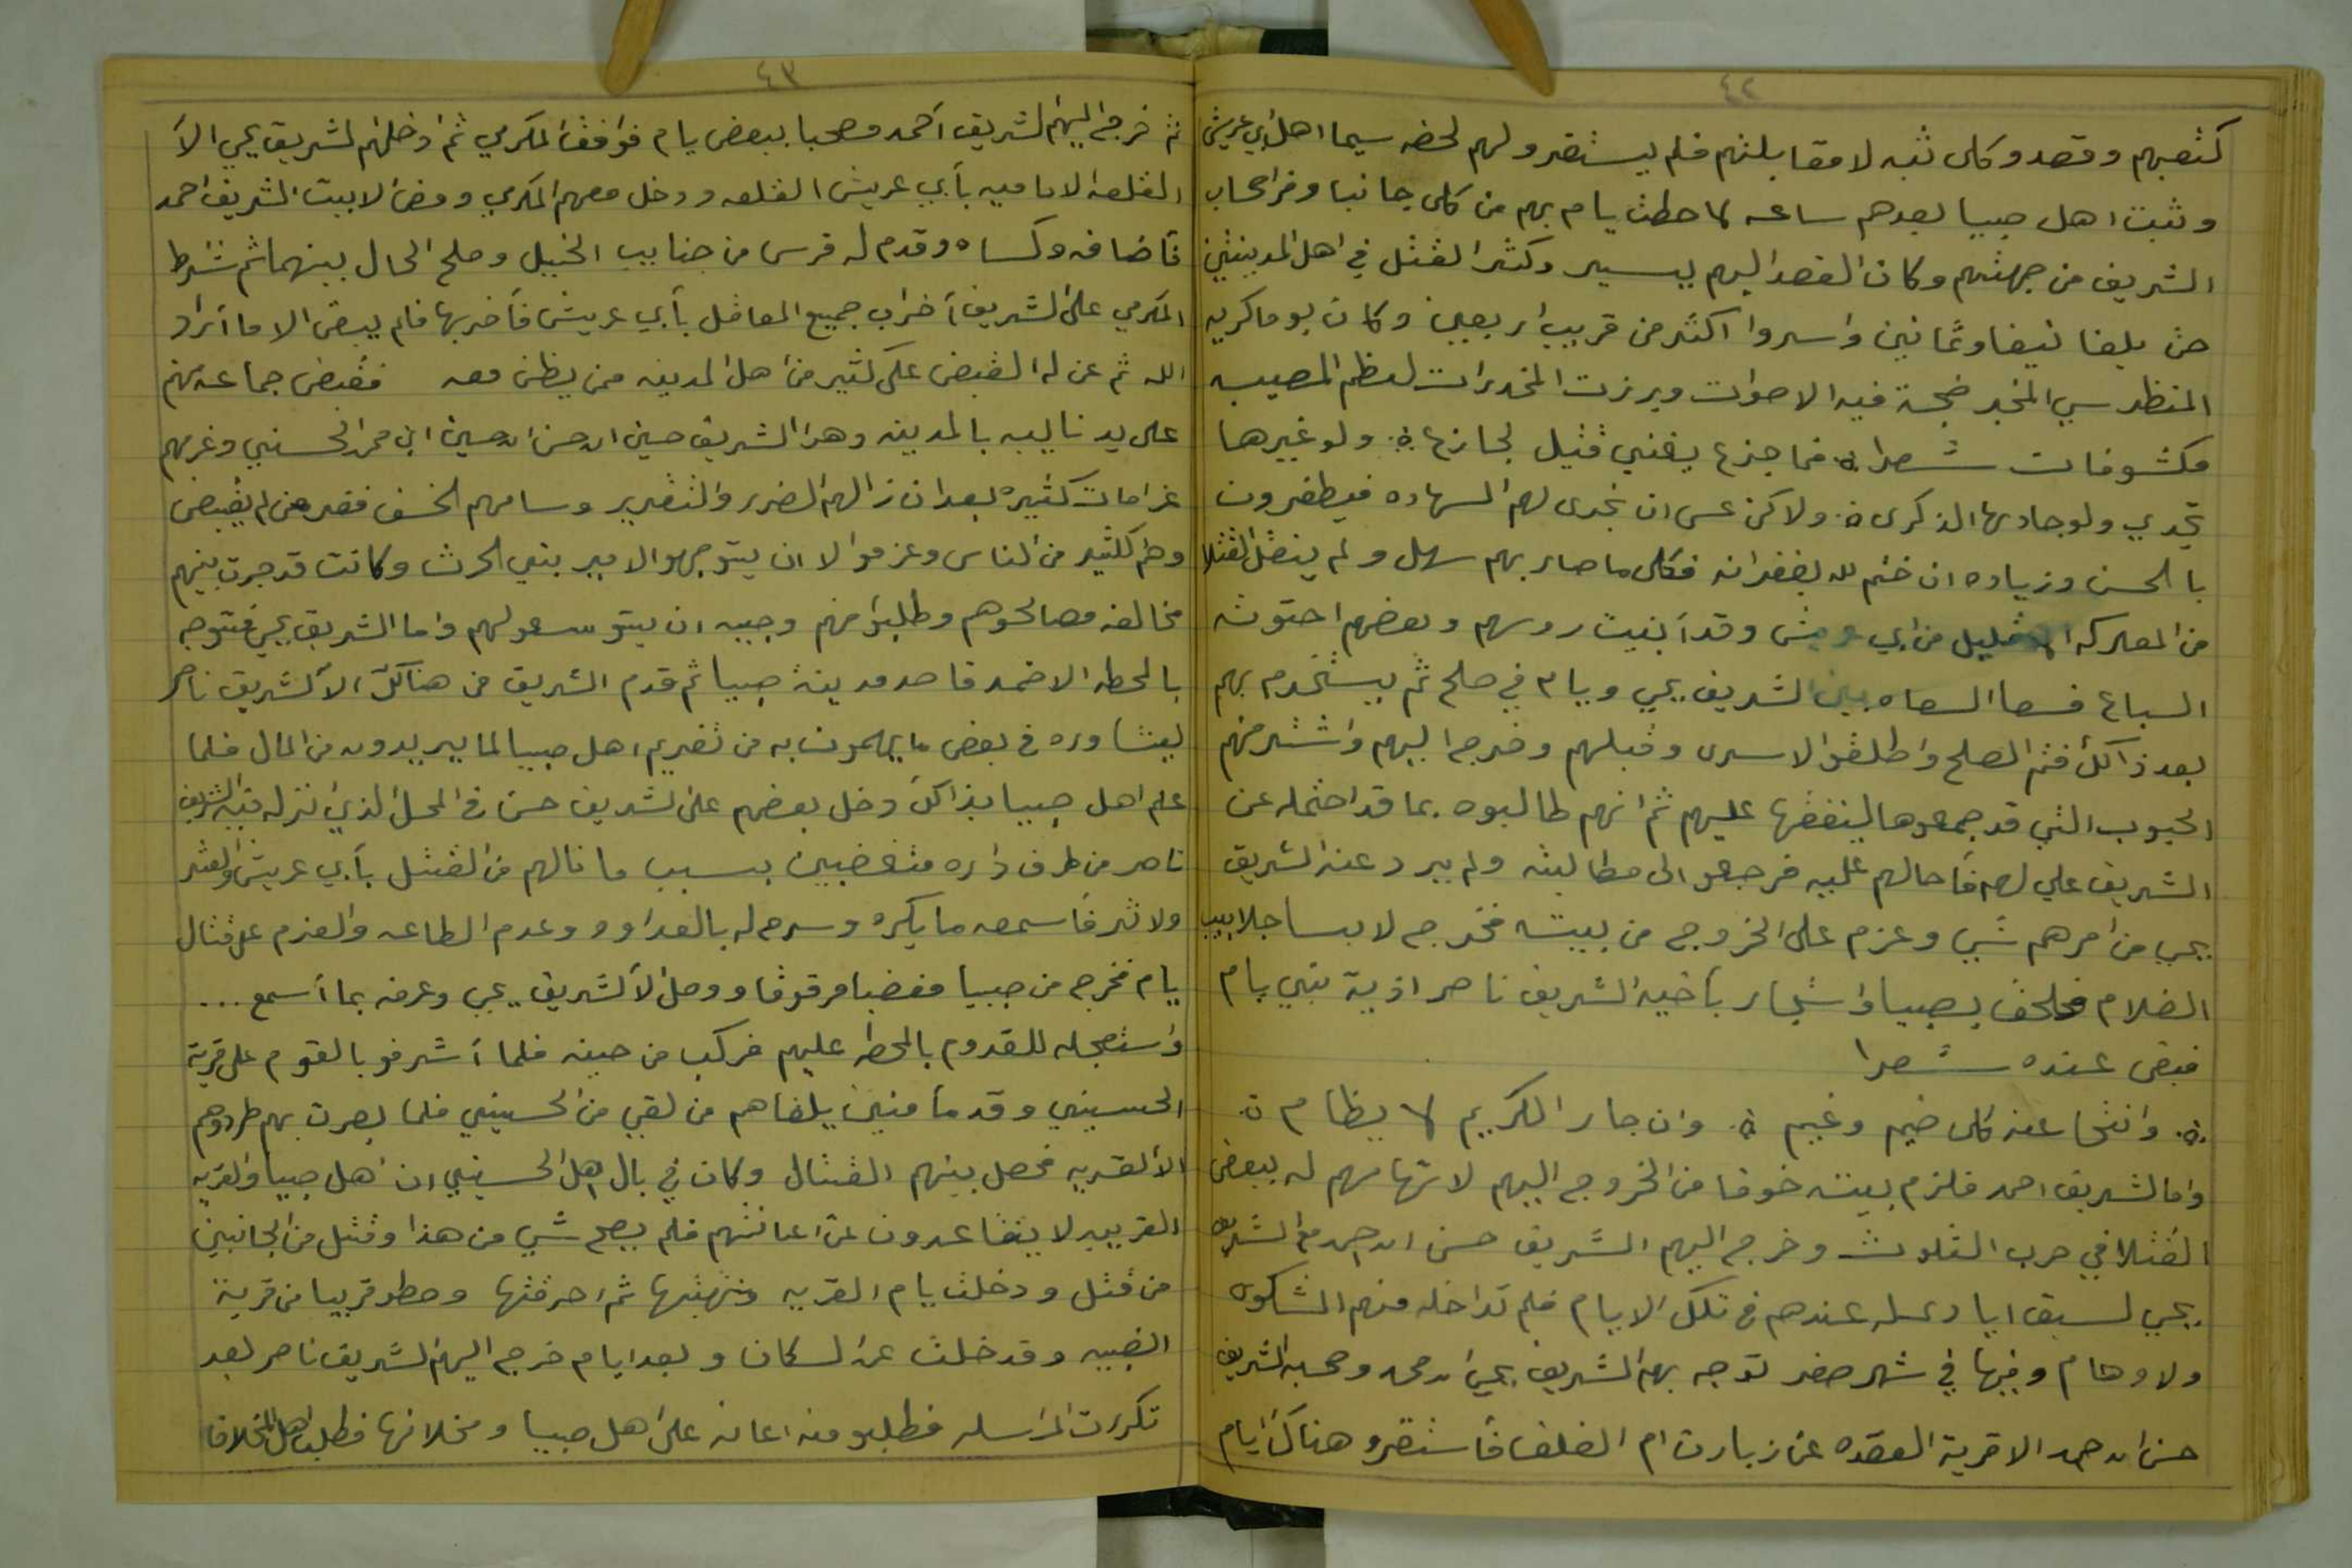 ٤٢
كتعبهم وقصد وكلى نثبه لا مقابلتهم فلم يستقرو لهم لحضه سيما اهل ابي عريش
وثبت اهل صبيا بعدهم ساعه لما حطت يام بهم من كلى جانبا وفر اصحاب
الشريف من جهتهم وكان القصد اليهم يسير وكثر القتل في اهل المدينتين
حتى بلغا نيفا وثمانين واسروا اكثر من قريب اربعين وكان يوما كريه
المنظر سيي المخبر ضجة فيه الاصوات وبرزت المخدرات لعظم المصيبه
مكشوفات شعرا فما جزع يغني قتيل لجازع ولو غيرها
تجدي ولو جاد بها الذكرى ولاكن عسى ان تجدى لهم السهاده فيظفرون
بالحسن وزياده ان ختم لله بغفرانه فكلى ما صار بهم سهل ولم ينقل القتلا
من المعركه الا قليل من ابي عريش وقد أبنيت روسهم وبعضهم احتوته
السباع فسعا السعاه بين الشريف يحي ويام في صلح ثم يستخدم بهم
بعد ذالك فتم الصلح واطلقوا الاسرى وقبلهم وخرج اليهم واشتر منهم
الحبوب التي قد جمعوها لينفقها عليهم ثم انهم طالبوه بما قد احتمله عن
الشريف علي لهم فأحالهم عليه فرجعو الى مطالبته ولم يرد عنه الشريف
يحي من امرهم شي وعزم على الخروج من بيته فخرج لابسا جلابيب
الضلام فلحق بصبيا واستجار بأخيه الشريف ناصر اذية بني يام
فبقى عنده شعرا
وانتحا عنه كلى ضيم وغيم وان جار الكريم لا يظام
واما الشريف احمد فلزم بيته خوفا من الخروج اليهم لاتهامهم له ببعض
القتلا في حرب الثلوث وخرج اليهم الشريف حسن ابن احمد مع الشريف
يحي لسبق ايادى له عندهم في تلك الايام فلم تداخله منهم الشكوى
ولاوهام وفيها في شهر صفر توجه بهم الشريف يحي ابن محمد وصحبه الشريف
حسن ابن احمد الا قرية العقده عن زبارت ام الغلف فأستقرو هناك ايام
٤٣
ثم خرج اليهم الشريف أحمد مصحبا ببعض يام فوافقه المكرمي ثم ادخلهم الشريف يحي الا
القلعه الاماميه بأبي عريش القلعه ودخل معهم المكرمي ومضى الا بيت الشريف احمد
فأضافه وكساه وقدم له فرس من جنايب الخيل وصلح الحال بينهما ثم شرط
المكرمي على الشريف أخراب جميع المعاقل بأبي عريش فأخربها فلم يبقى الا ما أراد
الله ثم عن له القبض على كثير من اهل المدينه ممن يظن معه فقبض جماعه منهم
على يد نايبه بالمدينه وهو الشريف حسين ابن حسن ابن حسين ابن محمد الحسني وغرمهم
غرامات كثيره بعد ان نالهم الضرر والتغرير وسامهم الخسف فقر من لم يقبض
وهم كثير من الناس وعزموا لا ان يتوجهو الا مير بني الحرث وكانت قد جرت بينهم
مخالفه فصالحوهم وطلبو منهم وجيه ان يتوسعو لهم واما الشريف يحي فتوجه
بالمحطه الا ضمد قاصد مدينة صبيا ثم قدم الشريف من هنالك الا الشريف ناصر
ليشاوره في بعض ما يهمون به من تغريم اهل صبيا لما يريدون من المال فلما
علم اهل صبيا بذالك دخل بعضهم على الشريف حسن في المحل الذي نزله فيه الشريف
ناصر من طرف داره متغضبين بسبب ما نالهم من القتل بأبي عريش والعثر
ولاثر فأسمعه ما يكره وسرح له بالعداوه وعدم الطاعه والعزم على قتال
يام فخرج من صبيا مغضبا مرقوقا ووصل الا الشريف يحي وعرفه بما أسمع ...
واستعجله للقدوم بالمحطه عليهم فركب من حينه فلما أشرفو بالقوم على قرية
الحسيني وقد مأمنين يلقاهم من لقي من الحسيني فلما بصرت بهم طردوهم
الا القريه فحصل بينهم القتال وكان في بال اهل الحسيني ان اهل صبيا والقريه
القريبه لا يتقاعدون عن اعانتهم فلم يصح شي من هذا وقتل من الجانبين
من قتل ودخلت يام القريه ونهبتها ثم احرقتها وحطو قريبا من قرية
الضبيه وقد خلت عن السكان وبعد ايام خرج اليهم الشريف ناصر بعد
تكررت المراسله فطلبو منه اعانه على اهل صبيا ومخلافها فطلب اهل المخلاف